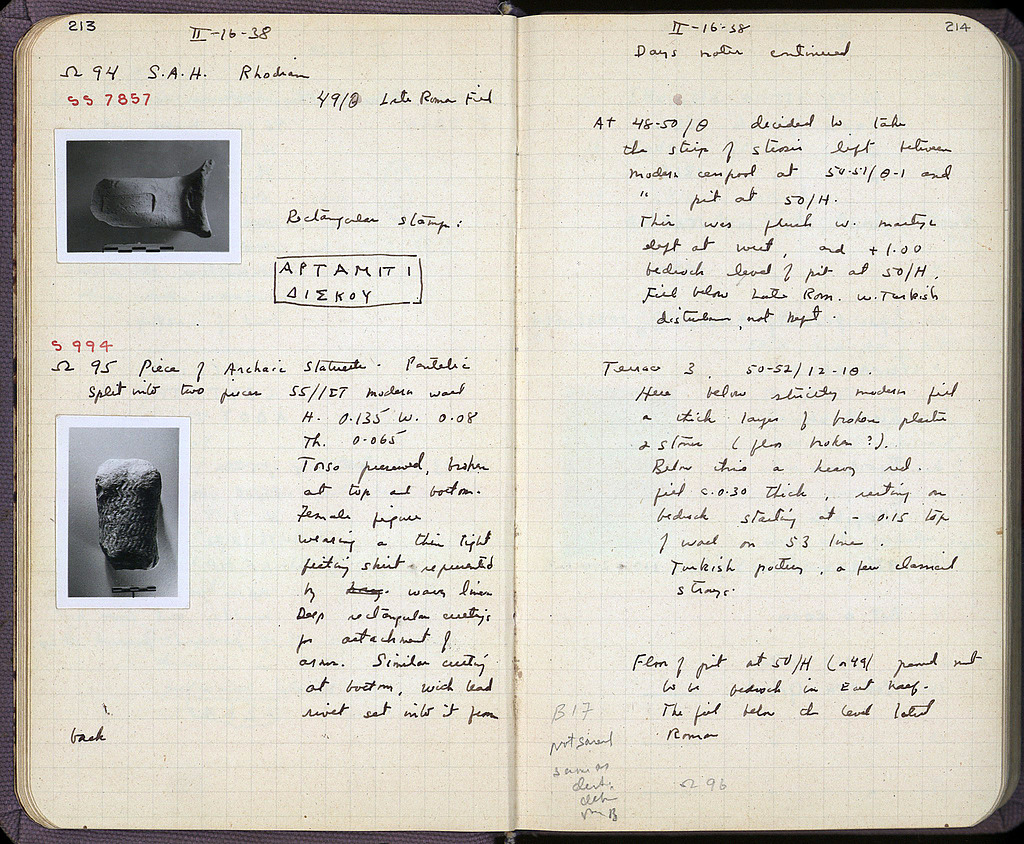 213
II-16-38
Ω 94 S.A.H. Rhodian
SS 7857
49/Θ Late Roman Fill
Rectangular stamp:
ΑΡΤΑΜΙΤΙ
ΔΙΣΚΟΥ
S 994
Ω 95 Piece of Archaic statuette. Pentelic
Split into two pieces 55/ modern wall
H. 0.135 W. 0.08
Th. 0.065
Torso preserved, broken
at top and bottom.
Female figure
wearing a thin tight
fitting skirt represented
by wavy lines
Deep rectangular cuttings
for attachment of
arms. Similar cutting
at bottom, with lead
rivet set into it from
back
214
II-16-38
Days notes continued
At 48-50/Θ decided to take
the strip of left between
modern cesspool at 50-51/Θ-1 and
" pit at 50/H.
This was w.
left at west, and +1.00
bedrock level of pit at 50/H.
Fill below Late Rom. w. Turkish
disturbance, not kept.
Terrace 3, 50-52/12-1Θ.
Here below strictly modern fill
a thick layer of broken plaster
& stones (floor broken?).
Below this a heavy red.
fill c. 0.30 thick, resting on
bedrock starting at - 0.15 top
of wall on 53 line.
Turkish pottery, a few classical
strays.
Floor of pit at 50/H (or 49/ proved not
to be bedrock in East half.
The fill below the level
Roman
B 17
not saved
same as
B
Ω 96